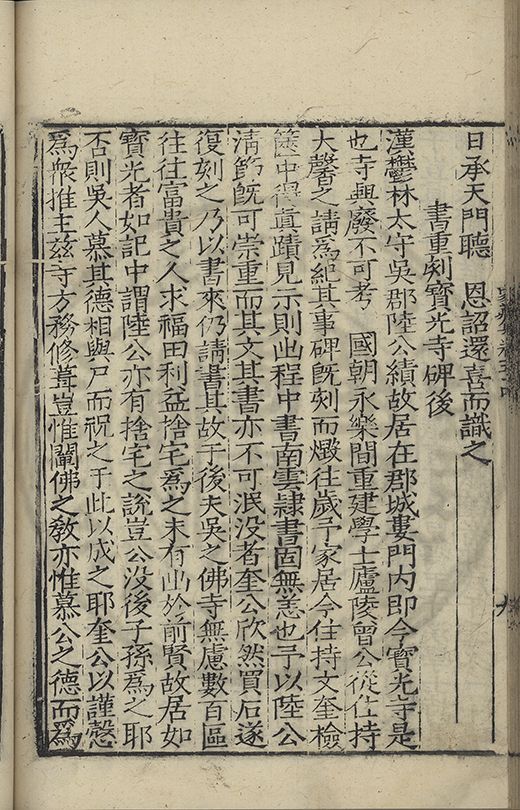 日承天門聽　恩詔還喜而識之
書重刻寶光寺碑後
漢鬱林太守吳郡陸公績故居在郡城婁門内即今寶光寺是
也寺興廢不可考　國朝永樂間重建學士廬陵曾公從住持
大馨之請爲紀其事碑既刻而燬往歲予家居今住持文奎檢
篋中得真蹟見示則出程中書南雲隸書固無恙也予以陸公
清節既可崇重而其文其書亦不可泯没者奎公欣然買石遂
復刻之乃以書來仍請書其故于後夫吳之佛寺無慮數百區
往往富貴之人求福田利益捨宅爲之未有出於前賢故居如
寶光者如記中謂陸公亦有捨宅之說豈公没後子孫爲之耶
否則吳人慕其德相與尸而祝之于此以成之耶奎公以謹愨
爲衆推主兹寺方務修葺豈惟闡佛之教亦惟慕公之德而爲